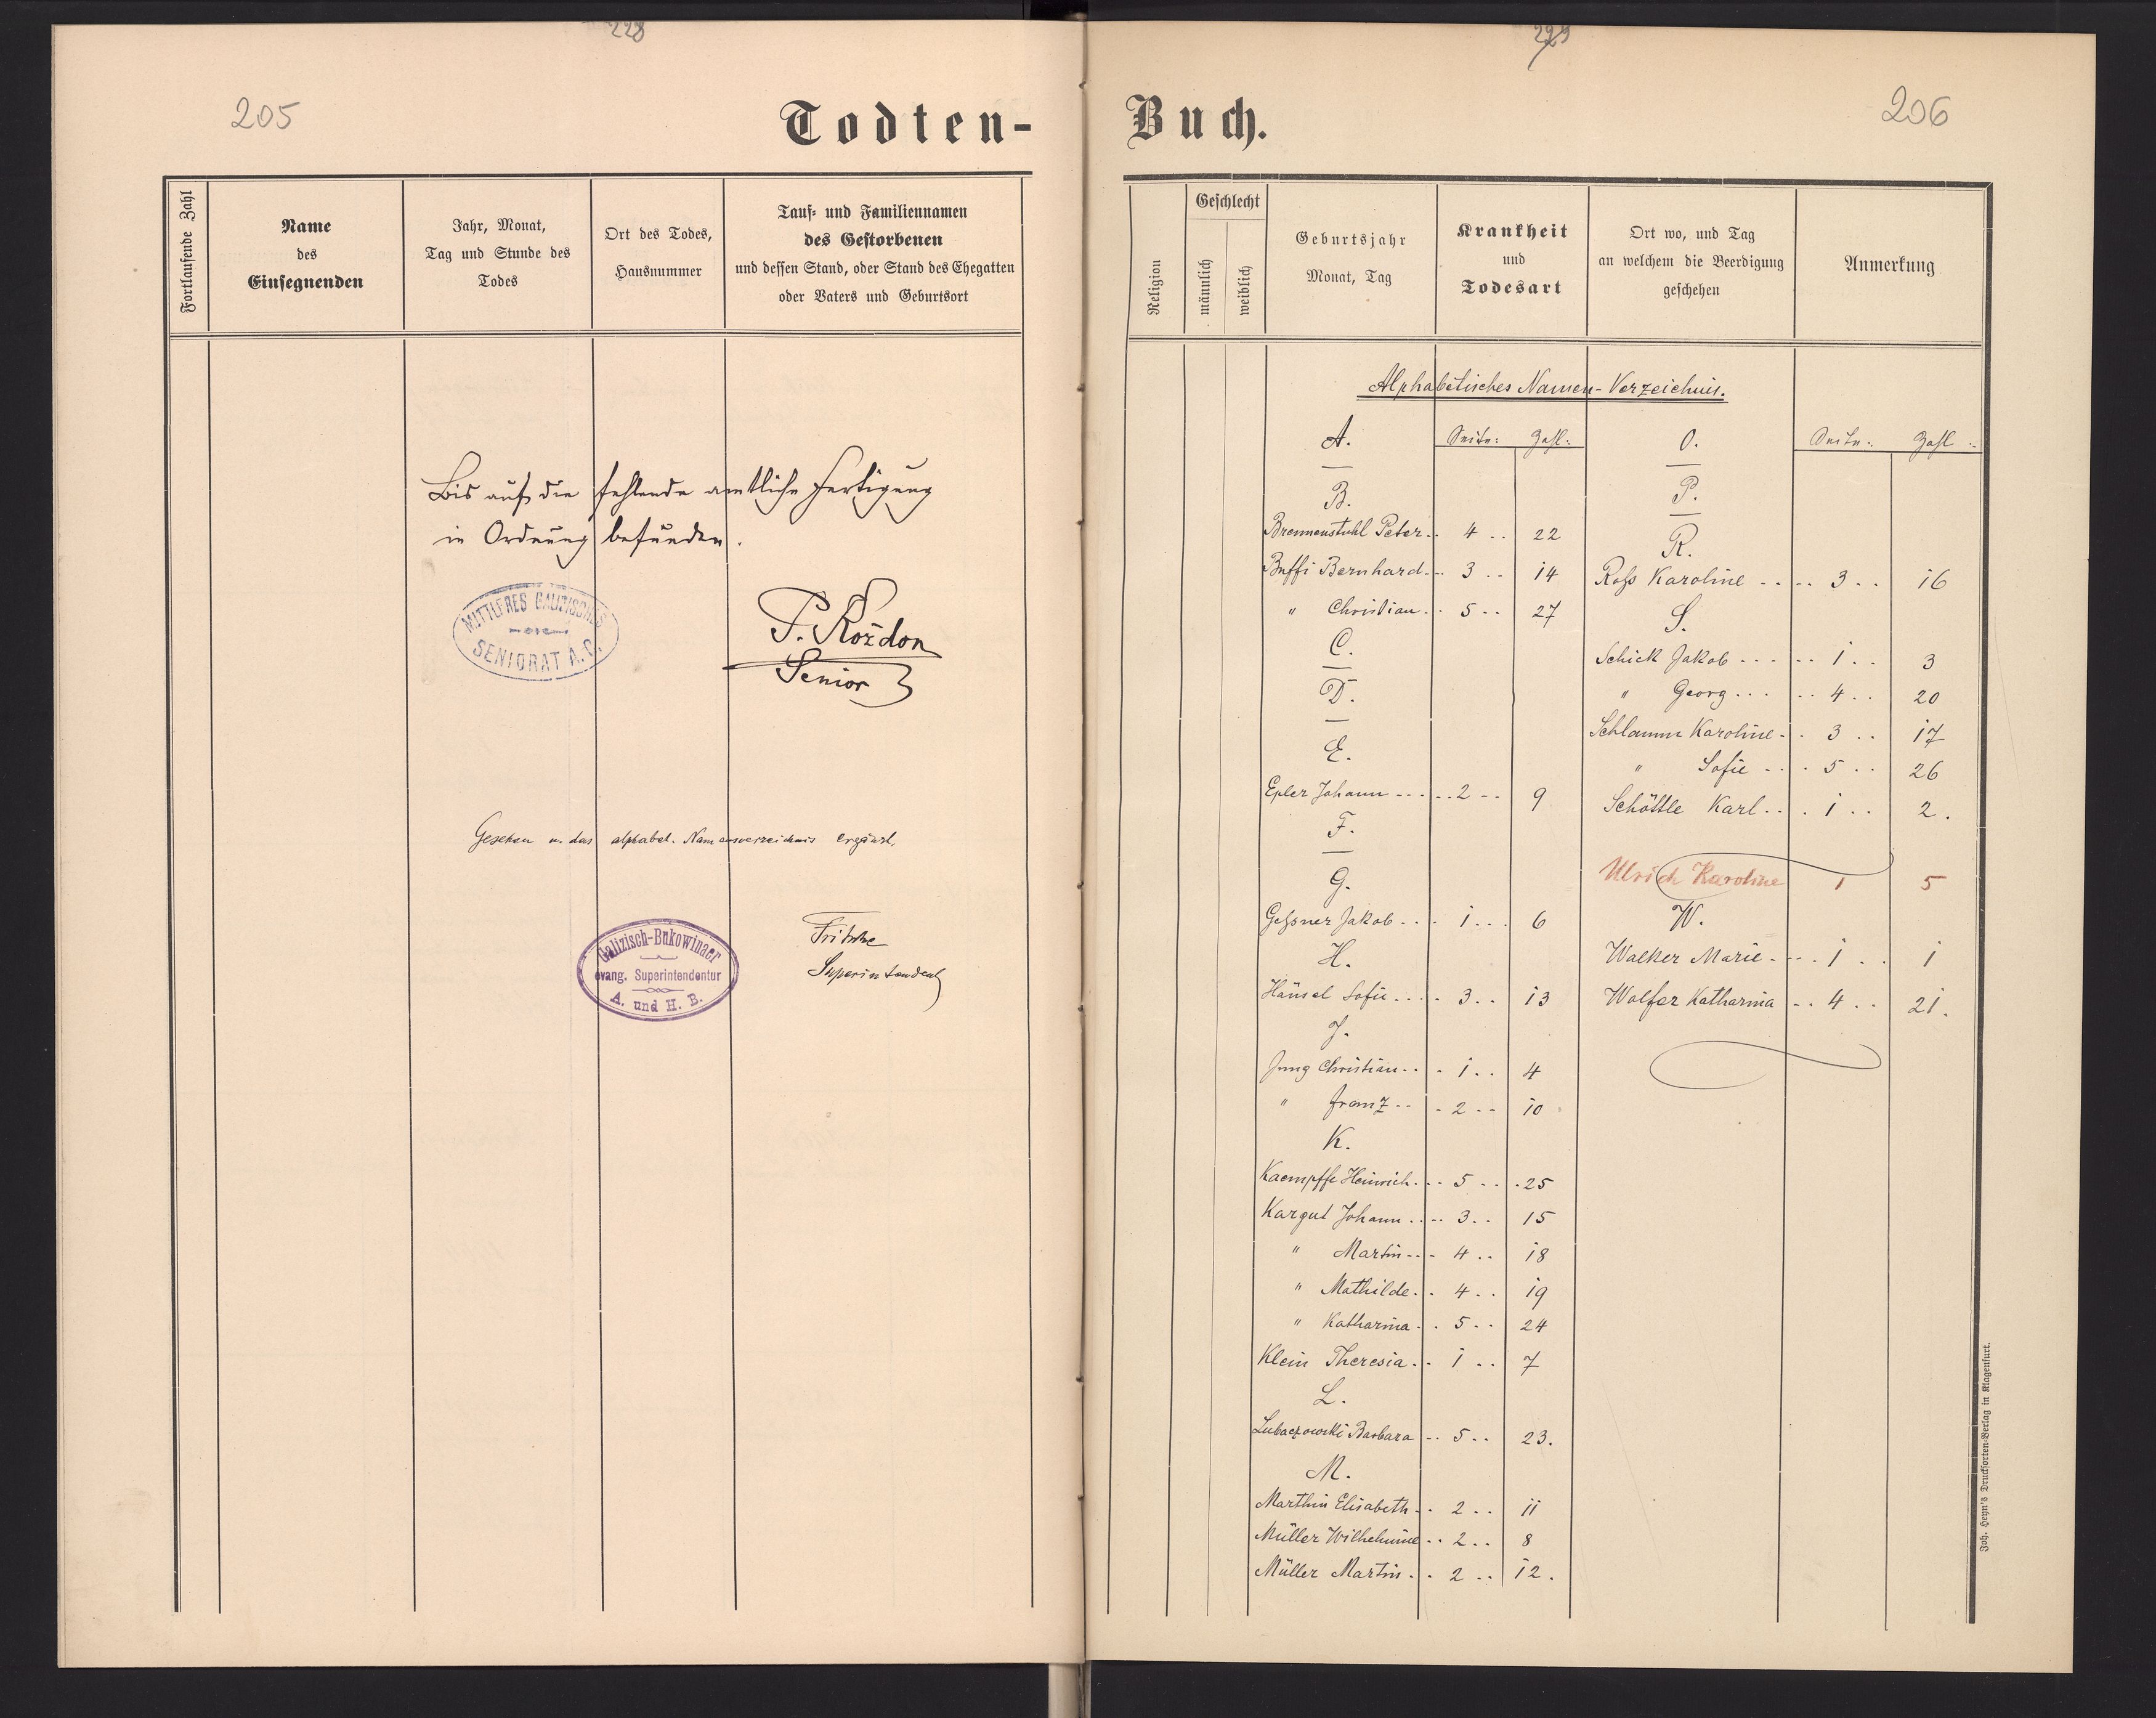 228
205
Todten-
Fortlaufende Zahl
Name
des
Einsegnenden
Jahr, Monat,
Tag und Stunde des
Todes
Ort des Todes,
Hausnummer
Tauf- und Familiennamen
des Gestorbenen
und dessen Stand, oder Stand des Ehegatten
oder Vaters und Geburtsort
Bis auf die fehlende amtliche Fertigung
in Ordnung befunden.
MITTLERES GALIZISCHES
SENIORAT A. C.
P. Rożdon
Senior
Gesehen u. das alphabet. Namensverzeichnis ergänzt.
Galizisch-Bukowinaer
evang. Superintendentur
A. und H. B.
Fritsche
Superintendent
229
206
Buch.
Religion
Geschlecht
männlich
weiblich
Geburtsjahr
Monat, Tag
Krankheit
und
Todesart
Ort wo, und Tag
an welchem die Beerdigung
geschehen
Anmerkung
Alphabetisches Namen-Verzeichnis.
A. Seite: Zahl:
B.
Brennenstuhl Peter 4 22
Buffi Bernhard 3 14
" Christian 5 27
C.
D.
E.
Epler Johann 2 9
F.
G.
Geßner Jakob 1 6
H.
Hänsel Sofie 3 13
J.
Jung Christian 1 4
" Franz 2 10
K.
Kaempffe Heinrich 5 25
Kargut Johann 3 15
" Martin 4 18
" Mathilde 4 19
" Katharina 5 24
Klein Theresia 1 7
L.
Lubaczowski Barbara 5 23.
M.
Marthin Elisabeth 2 11
Müller Wilhelmine 2 8
Müller Martin 2 12.
O. Seite: Zahl:
P.
R.
Roß Karoline 3 16
S.
Schick Jakob 1 3
" Georg 4 20
Schlamm Karoline 3 17
" Sofie 5 26
Schöttle Karl 1 2.
Ulrich Karoline 1 5
W.
Walker Marie 1 1
Wolfer Katharina 4 21.
Joh. Heyn's Drucksorten-Verlag in Klagenfurt.